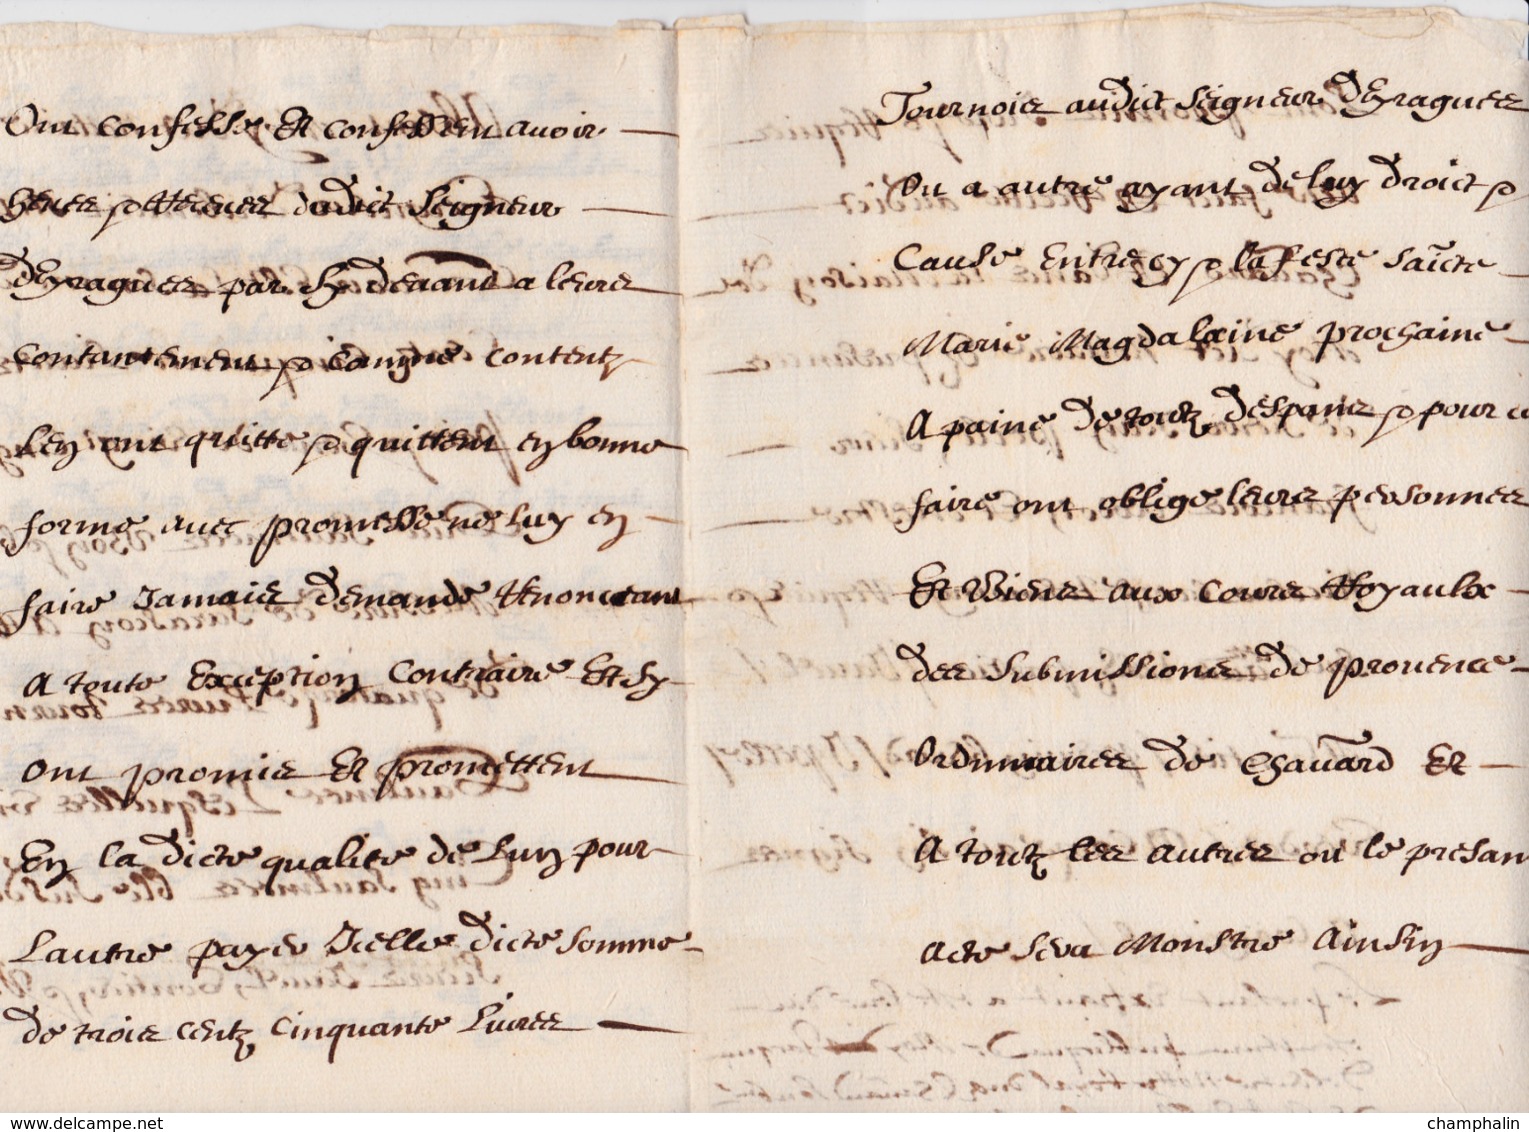 Ont confesse et confessent avoir
heues & Receues dudict Seigneur
dEyragues par cy devant a leurs
contantement & comme contentz
Len ont quitte & quittent en bonne
forme avec promesse ne luy en
faire Jamais demande Renonceant
A toute Exception Contraire Et sy
ont promis et promettent
En la dicte qualite de Lun pour
Lautre payer Icelle dicte somme
de trois centz cinquante Livres
Tournois audict seigneur dEyragues
Ou a autre ayant de luy droict &
Cause Entre cy & la feste saincte
Marie Magdalaine prochaine
A paine de toutz despans & pour ce
faire ont oblige leurs personnes
Et Biens aux Cours Royaulx
des submissions de provence
Ordinnaires de Chanard et
A toutz les autres ou le presan
Acte sera Monstre Ainsin
www.delcampe.net
champhalin